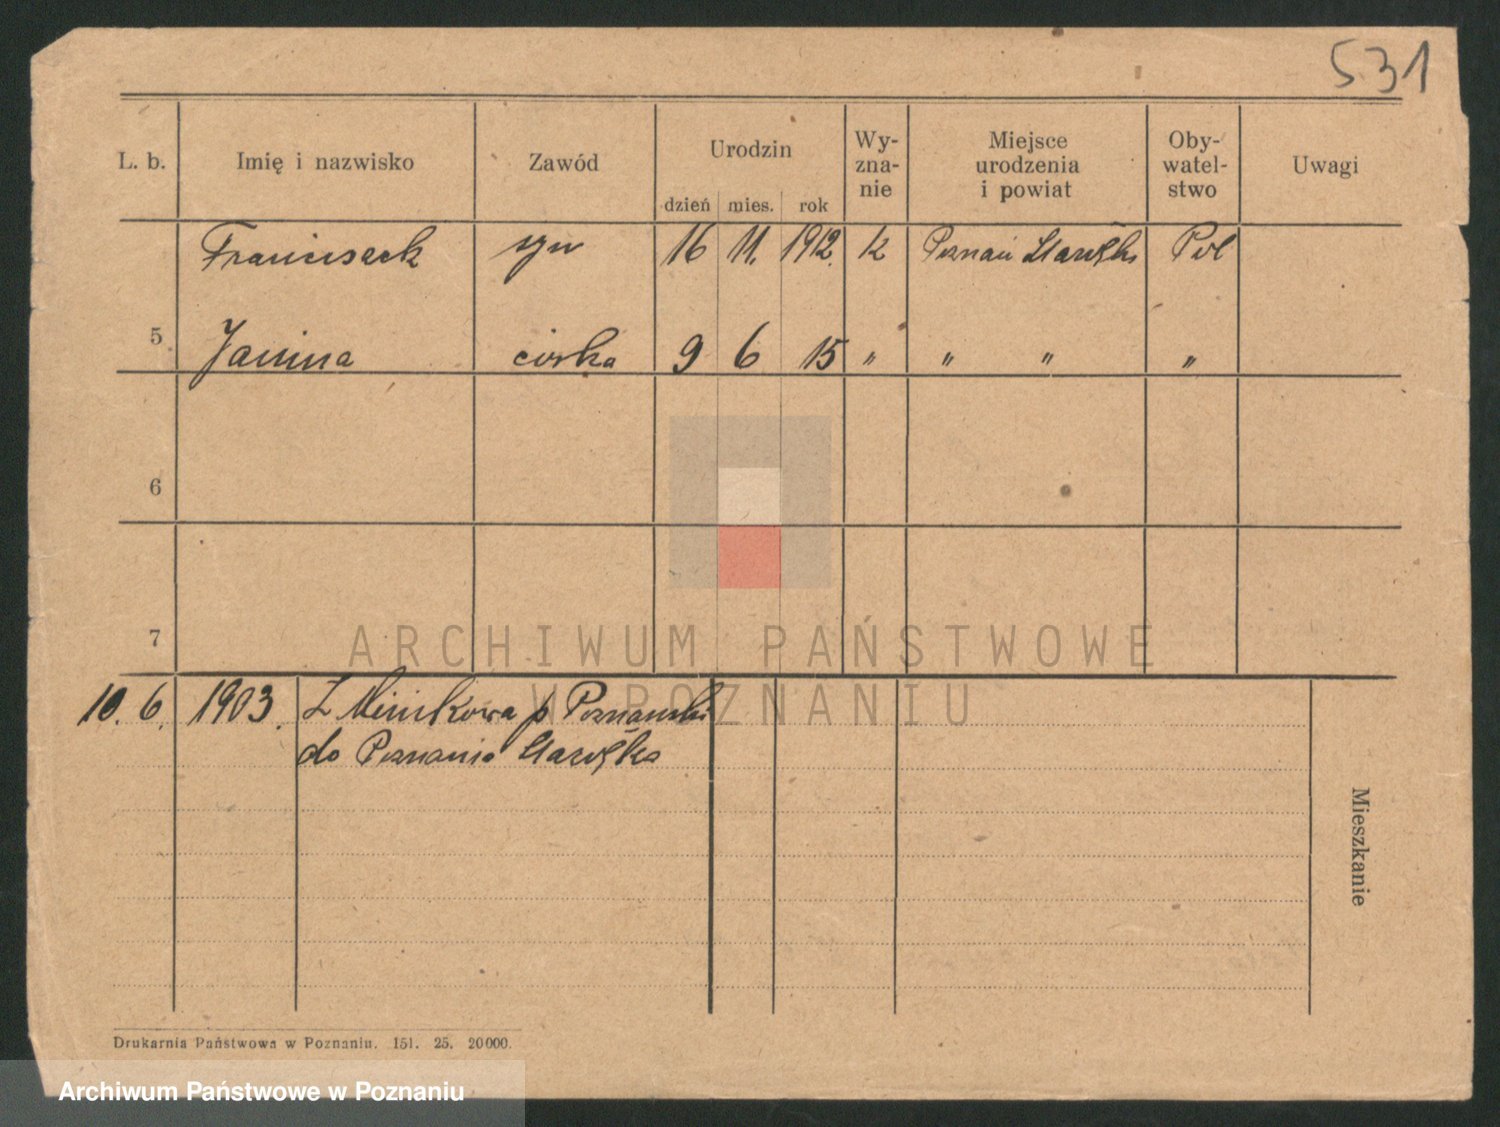 531
L. b. Imię i nazwisko Zawód Urodzin Wy-zna-nie Miejsce urodzenia i powiat Oby-watel-stwo Uwagi
dzień mies. rok
Franciszek syn 16 11. 1912. k Poznań Starołęka Pol
5 Janina córka 9 6 15 " " " "
6
7
ARCHIWUM PAŃSTWOWE
W POZNANIU
10. 6. 1903. Z Minikowa p Poznański
do Poznania Starołęka
Mieszkanie
Drukarnia Państwowa w Poznaniu. 151. 25. 20000.
Archiwum Państwowe w Poznaniu